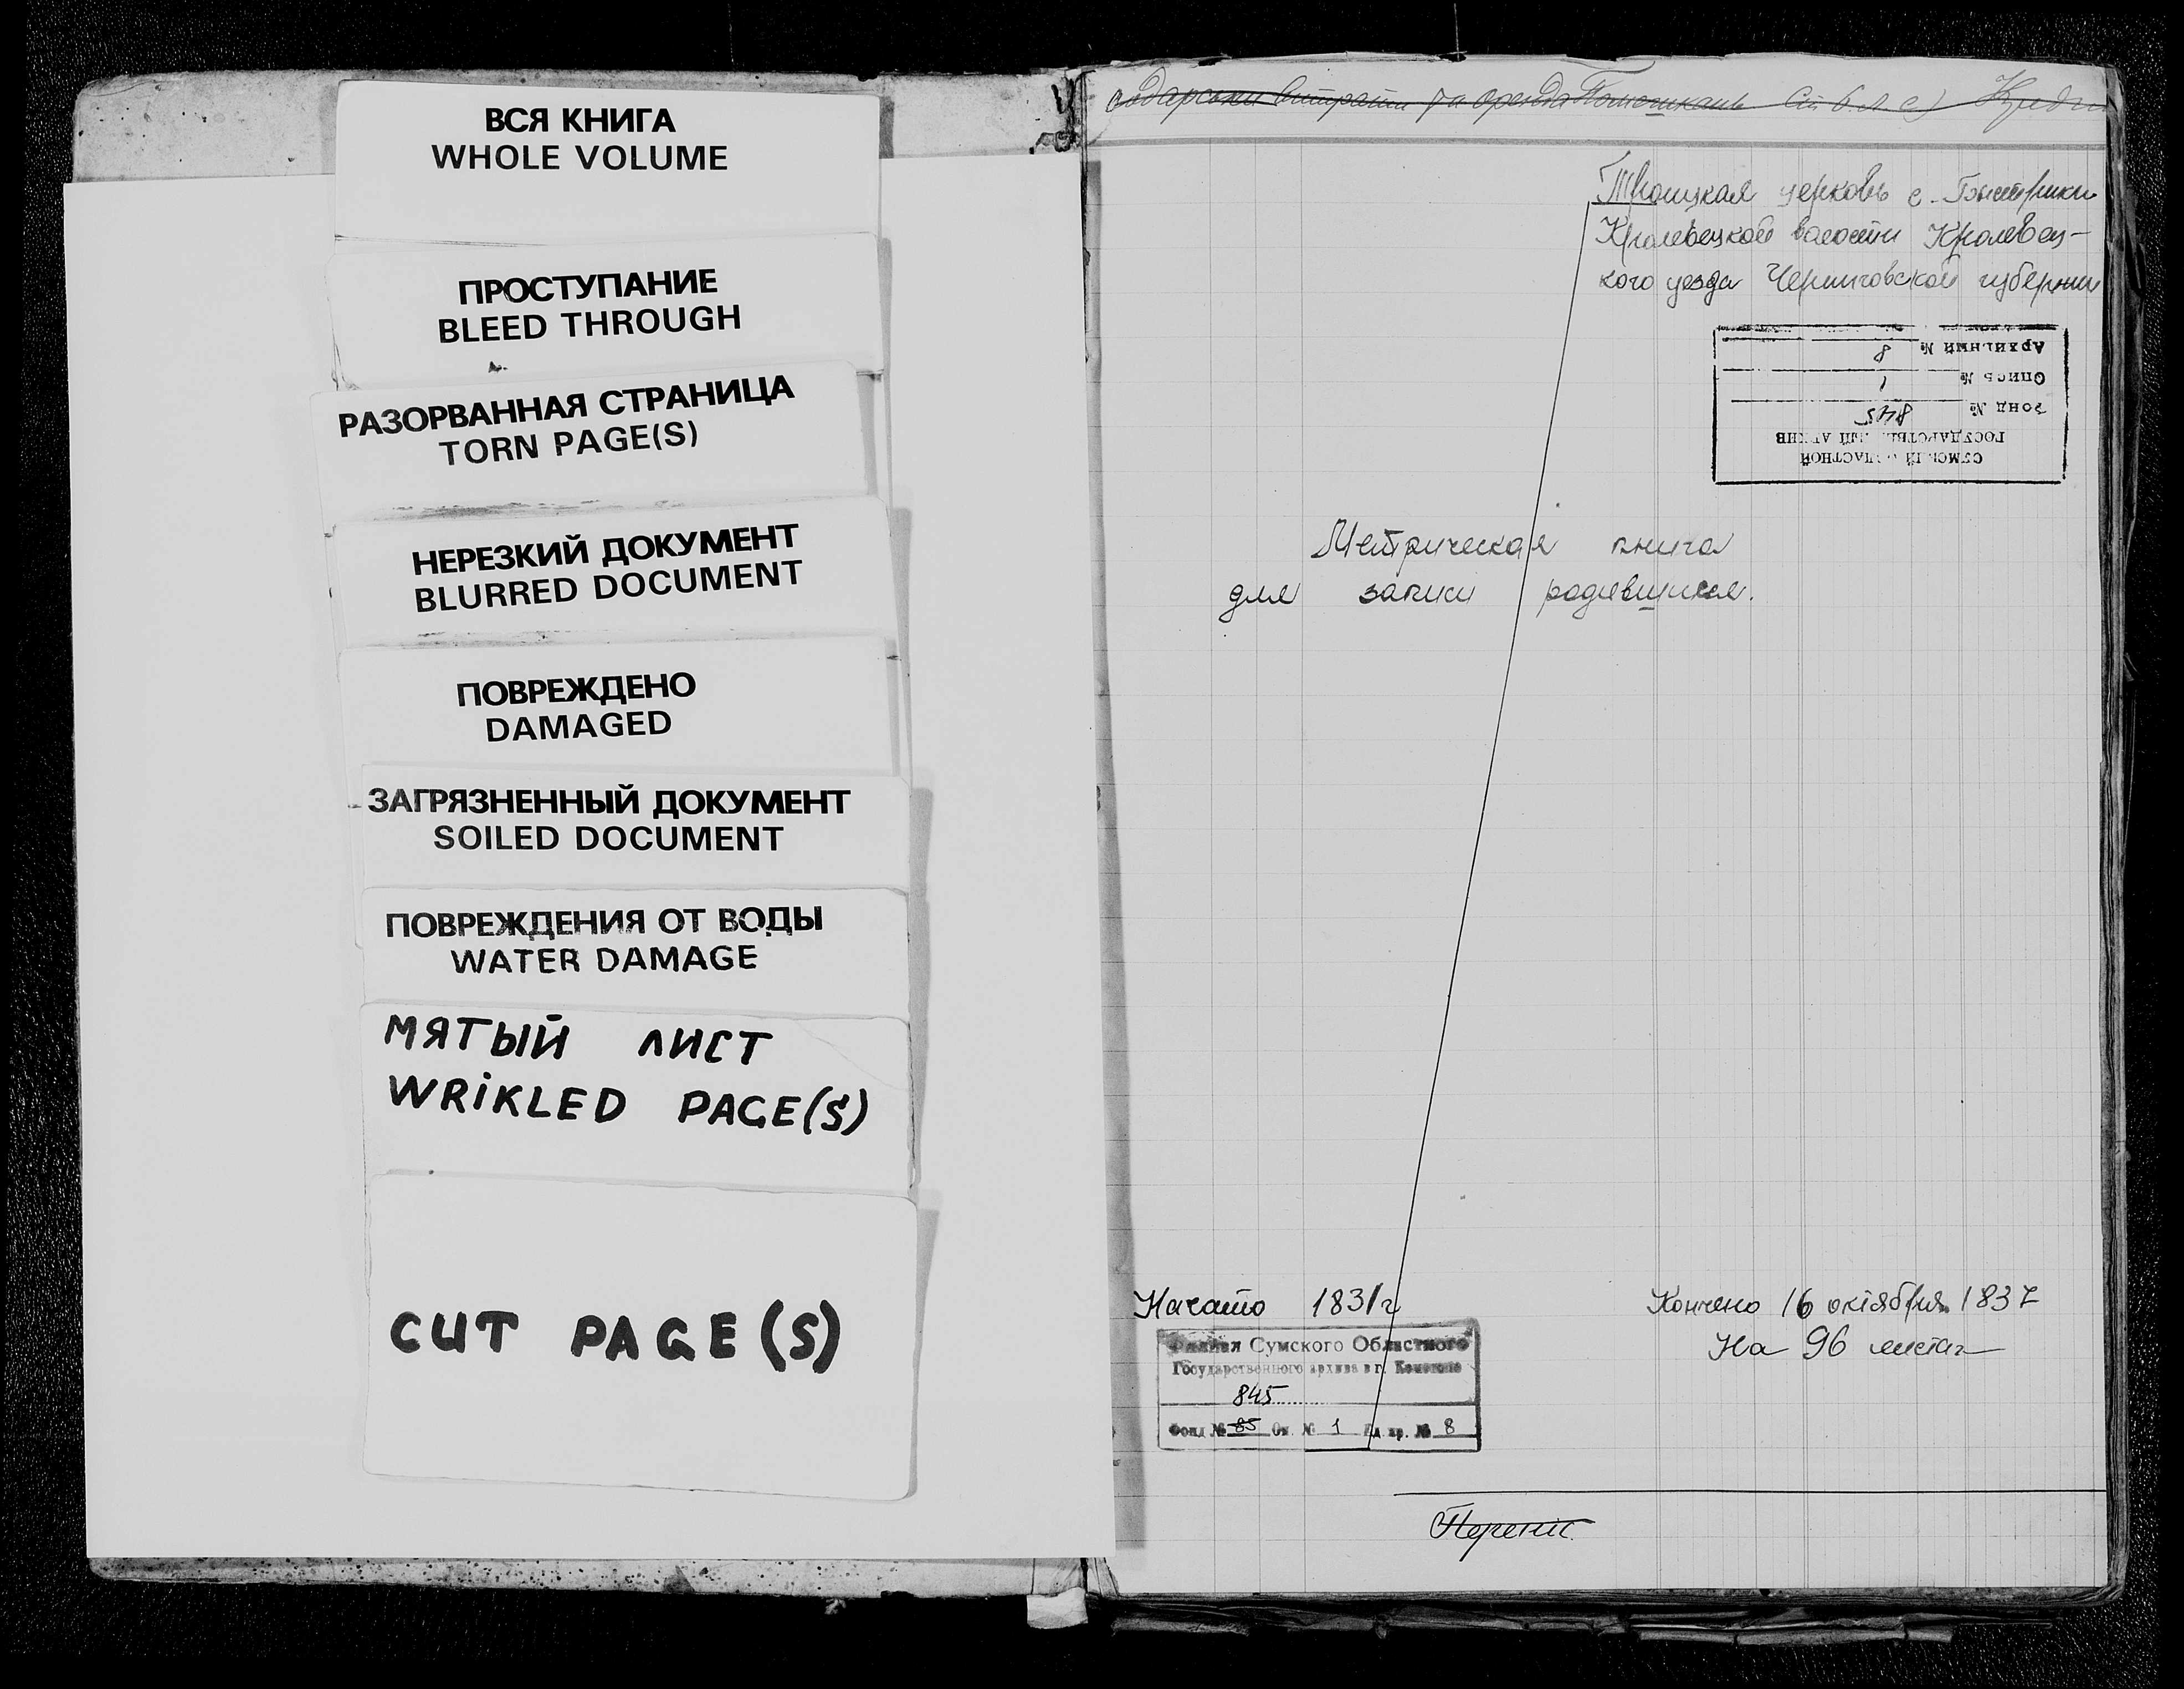 ВСЯ КНИГА
WHOLE VOLUME
ПРОСТУПАНИЕ
BLEED THROUGH
РАЗОРВАННАЯ СТРАНИЦА
TORN PAGE(S)
НЕРЕЗКИЙ ДОКУМЕНТ
BLURRED DOCUMENT
ПОВРЕЖДЕНО
DAMAGED
ЗАГРЯЗНЕННЫЙ ДОКУМЕНТ
SOILED DOCUMENT
ПОВРЕЖДЕНИЯ ОТ ВОДЫ
WATER DAMAGE
МЯТЫЙ ЛИСТ
WRIKLED PAGE(S)
CUT PAGE(S)
Троицкая церковь с. Быстрики
Кролевецкой волости Кролевец-
кого уезда Черниговской губернии
СУМСКИЙ ОБЛАСТНОЙ
ГОСУДАРСТВЕННЫЙ АРХИВ
Фонд № 845
Опись № 1
Архивный № 8
Метрическая книга
для записи родившихся.
Начато 1831 г
Кончено 16 октября 1837
На 96 листах
Филиал Сумского Областного
Государственного архива в г. Конотопе
845
Фонд № 85 Оп. № 1 Ед. хр. № 8